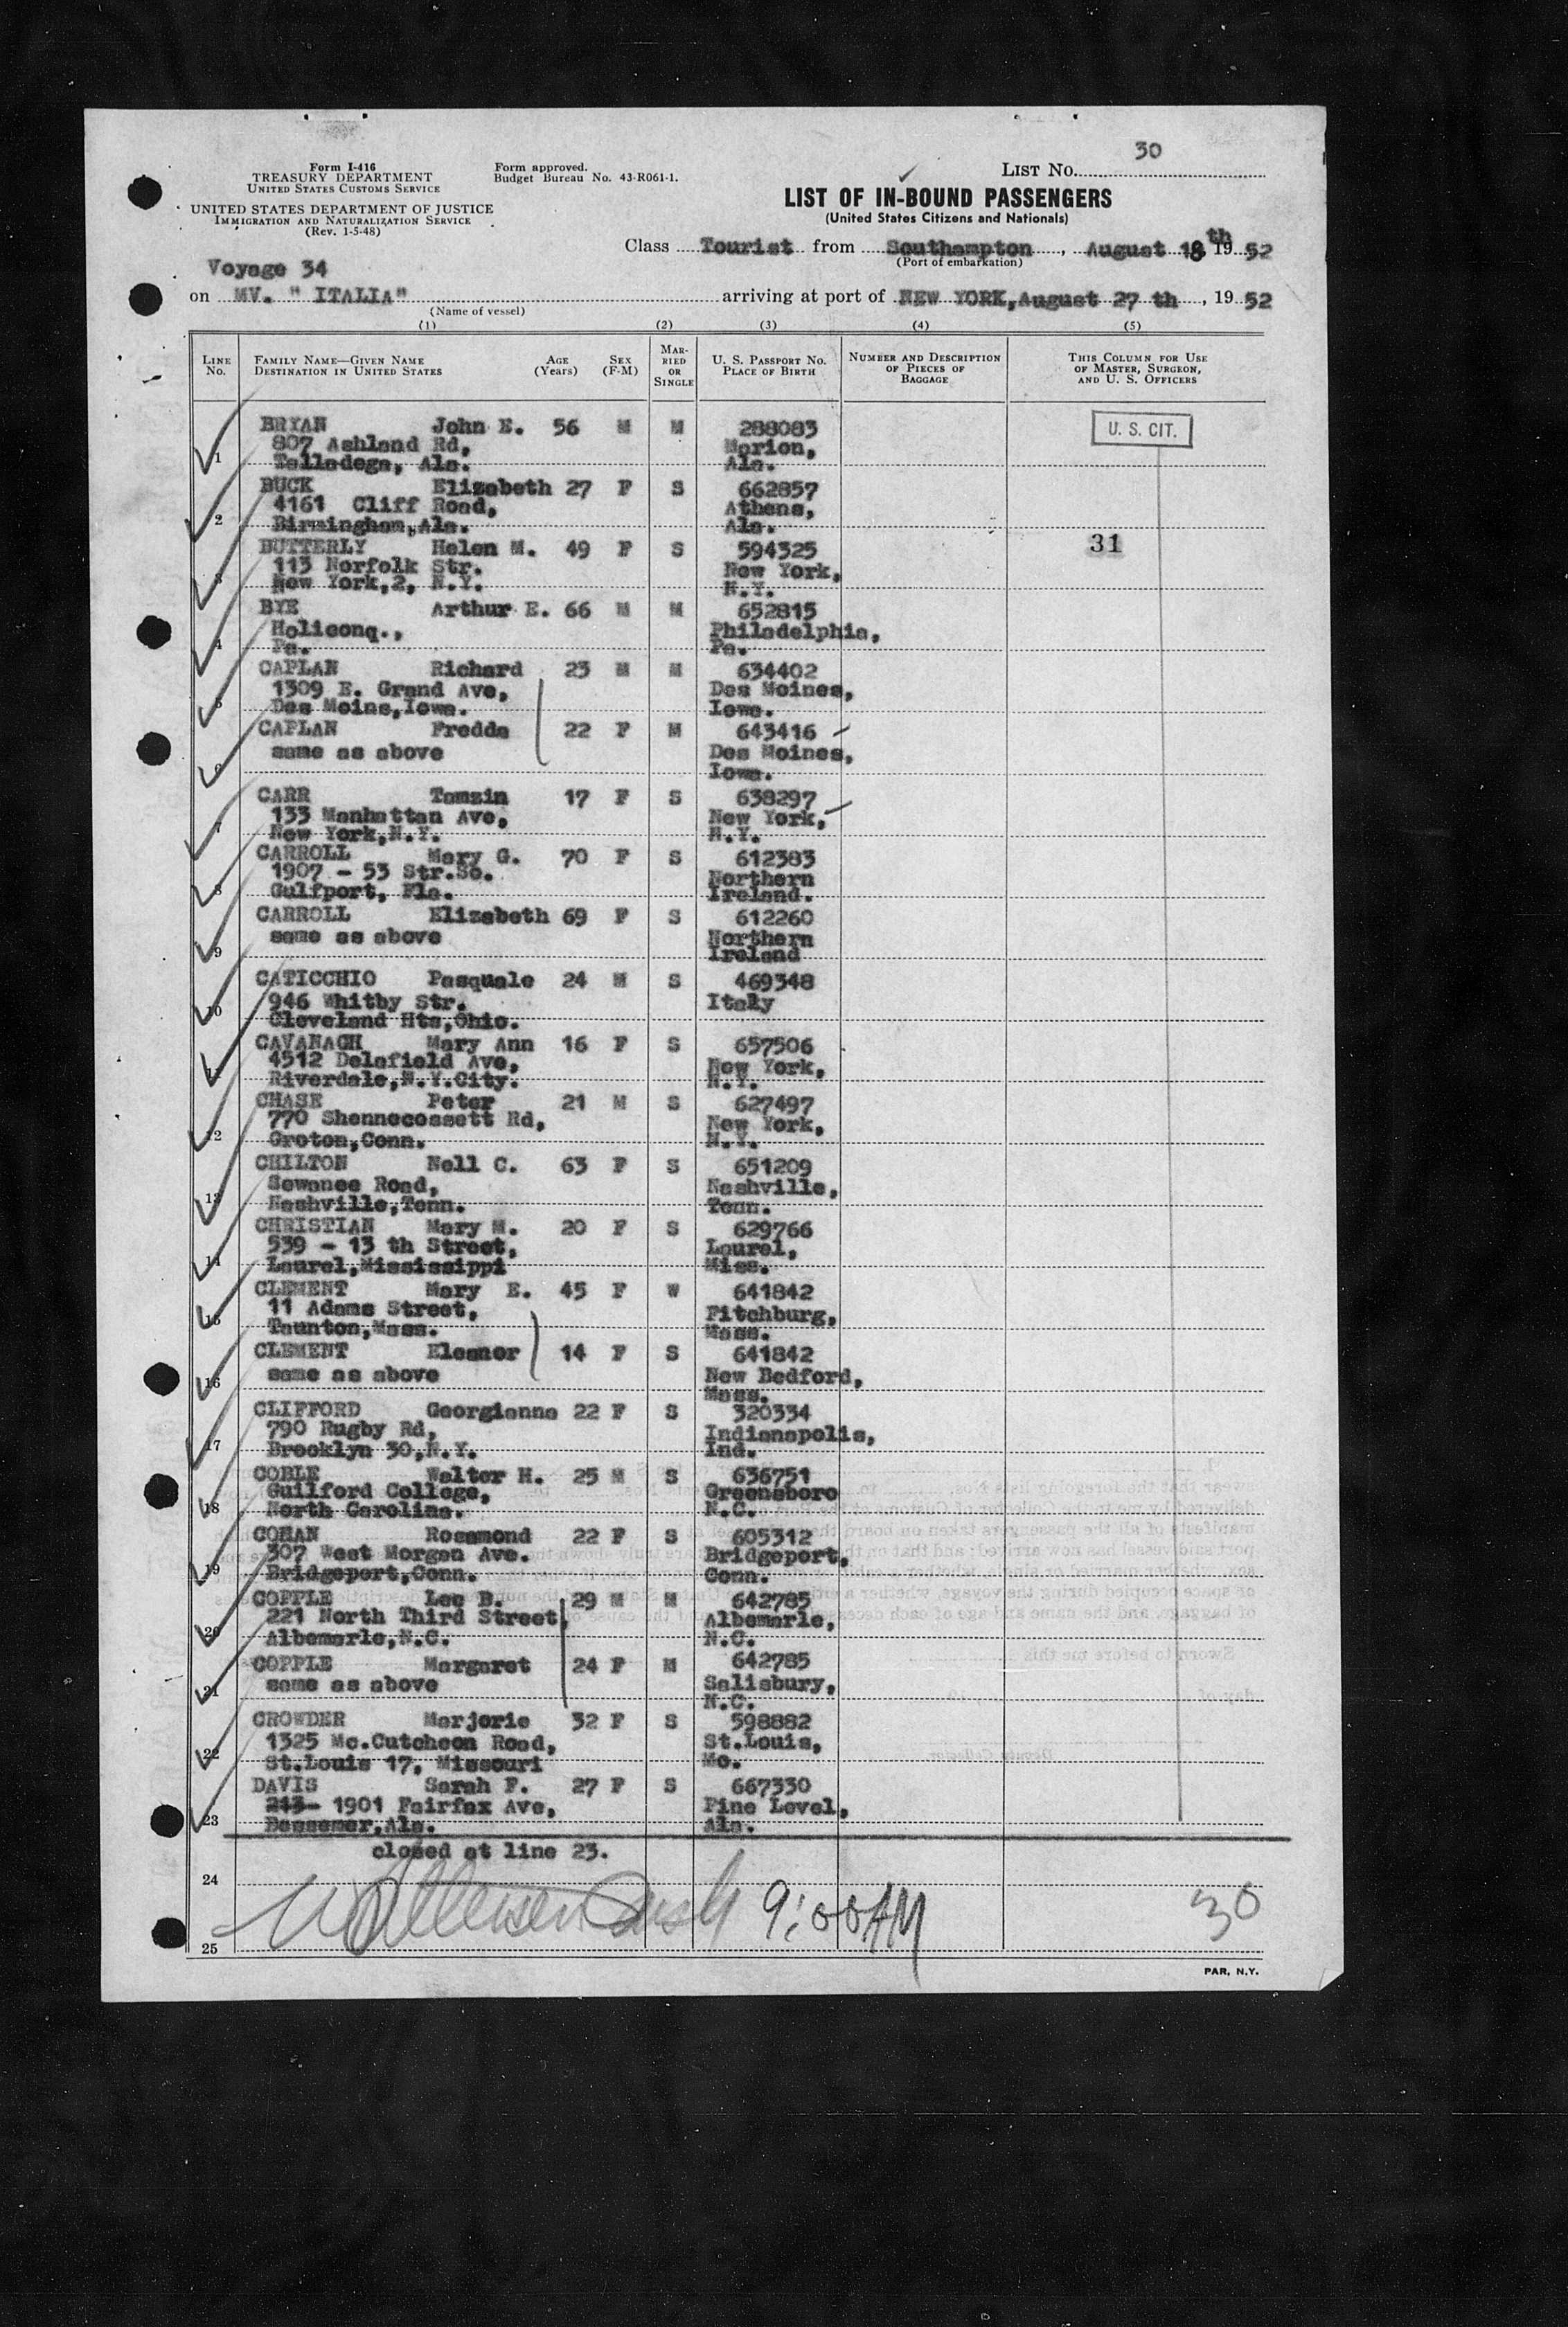 30
Form I-416
TREASURY DEPARTMENT
UNITED STATES CUSTOMS SERVICE
UNITED STATES DEPARTMENT OF JUSTICE
IMMIGRATION AND NATURALIZATION SERVICE
(Rev. 1-5-48)
Form approved.
Budget Bureau No. 43-R061-1.
LIST No.
LIST OF IN-BOUND PASSENGERS
(United States Citizens and Nationals)
Class Tourist from Southampton, August 18th 1952
(Port of embarkation)
Voyage 34
on MV. "ITALIA" arriving at port of NEW YORK, August 27 th, 1952
(Name of vessel)
(1) (2) (3) (4) (5)
LINE No. FAMILY NAME—GIVEN NAME DESTINATION IN UNITED STATES AGE (Years) SEX (F-M) MARRIED OR SINGLE U. S. PASSPORT No. PLACE OF BIRTH NUMBER AND DESCRIPTION OF PIECES OF BAGGAGE THIS COLUMN FOR USE OF MASTER, SURGEON, AND U. S. OFFICERS
BRYAN John E. 56 M M 288083 U. S. CIT.
807 Ashland Rd, Marion,
1 Talladega, Ala. Ala.
BUCK Elizabeth 27 F S 662857
4161 Cliff Road, Athens,
2 Birmingham, Ala. Ala.
BUTTERLY Helen M. 49 F S 594325 31
113 Norfolk Str. New York,
3 New York, 2, N.Y. N.Y.
BYE Arthur E. 66 M M 652815
Holiconq., Philadelphia,
4 Pa. Pa.
CAPLAN Richard 23 M M 634402
1309 E. Grand Ave, Des Moines,
5 Des Moins, Iowa. Iowa.
CAPLAN Fredda 22 F M 643416
same as above Des Moines,
6 Iowa.
CARR Tamzin 17 F S 638297
133 Manhattan Ave, New York,
7 New York, N.Y. N.Y.
CARROLL Mary G. 70 F S 612383
1907 - 53 Str. So. Northern
8 Gulfport, Fla. Ireland.
CARROLL Elizabeth 69 F S 612260
same as above Northern
9 Ireland
CATICCHIO Pasquale 24 M S 469348
946 Whitby Str. Italy
10 Cleveland Hts, Ohio.
CAVANAGH Mary Ann 16 F S 657506
4512 Delafield Ave, New York,
11 Riverdale, N.Y. City. N.Y.
CHASE Peter 21 M S 627497
770 Shennecossett Rd, New York,
12 Groton, Conn. N.Y.
CHILTON Nell C. 63 F S 651209
Sewanee Road, Nashville,
13 Nashville, Tenn. Tenn.
CHRISTIAN Mary M. 20 F S 629766
539 - 13 th Street, Laurel,
14 Laurel, Mississippi Miss.
CLEMENT Mary E. 45 F W 641842
11 Adams Street, Fitchburg,
15 Taunton, Mass. Mass.
CLEMENT Eleanor 14 F S 641842
same as above New Bedford,
16 Mass.
CLIFFORD Georgianna 22 F S 320334
790 Rugby Rd, Indianapolis,
17 Brooklyn 30, N.Y. Ind.
COBLE Walter H. 25 M S 636751
Guilford College, Greensboro
18 North Carolina. N.C.
COHAN Rosamond 22 F S 605312
307 West Morgan Ave. Bridgeport,
19 Bridgeport, Conn. Conn.
COPPLE Lee B. 29 M M 642785
221 North Third Street, Albemarle,
20 Albemarle, N.C. N.C.
COPPLE Margaret 24 F M 642785
same as above Salisbury,
21 N.C.
CROWDER Marjorie 32 F S 598882
1325 Mc.Cutcheon Road, St.Louis,
22 St.Louis 17, Missouri Mo.
DAVIS Sarah F. 27 F S 667330
213- 1901 Fairfax Ave, Pine Level,
23 Bessemer, Ala. Ala.
closed at line 23.
24
9:00 AM 30
25
PAR, N.Y.